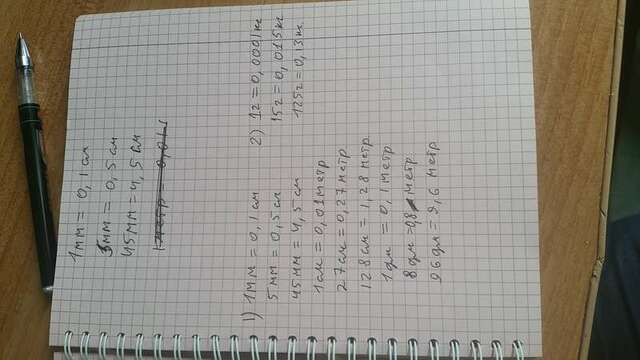 1мм = 0,1см
5мм = 0,5см
45мм = 4,5см
1 метр = 0,01
1) 1мм = 0,1см
5мм = 0,5см
45мм = 4,5см
1см = 0,01метр
27см = 0,27метр
128см = 1,28 метр
1дм = 0,1метр
8дм = 0,8 метр
96дм = 9,6 метр
2) 1г = 0,0001кг
15г = 0,015кг
125г = 0,13кг